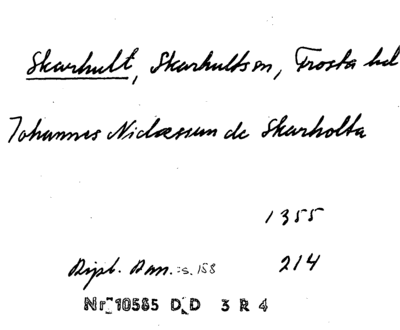 Skarhult, Skarhults sn, Frosta hd
Johannes Niclæssun de Skarholta
1355
Dipl. Dan. s. 158 214
Nr 10585 D D 3 R 4